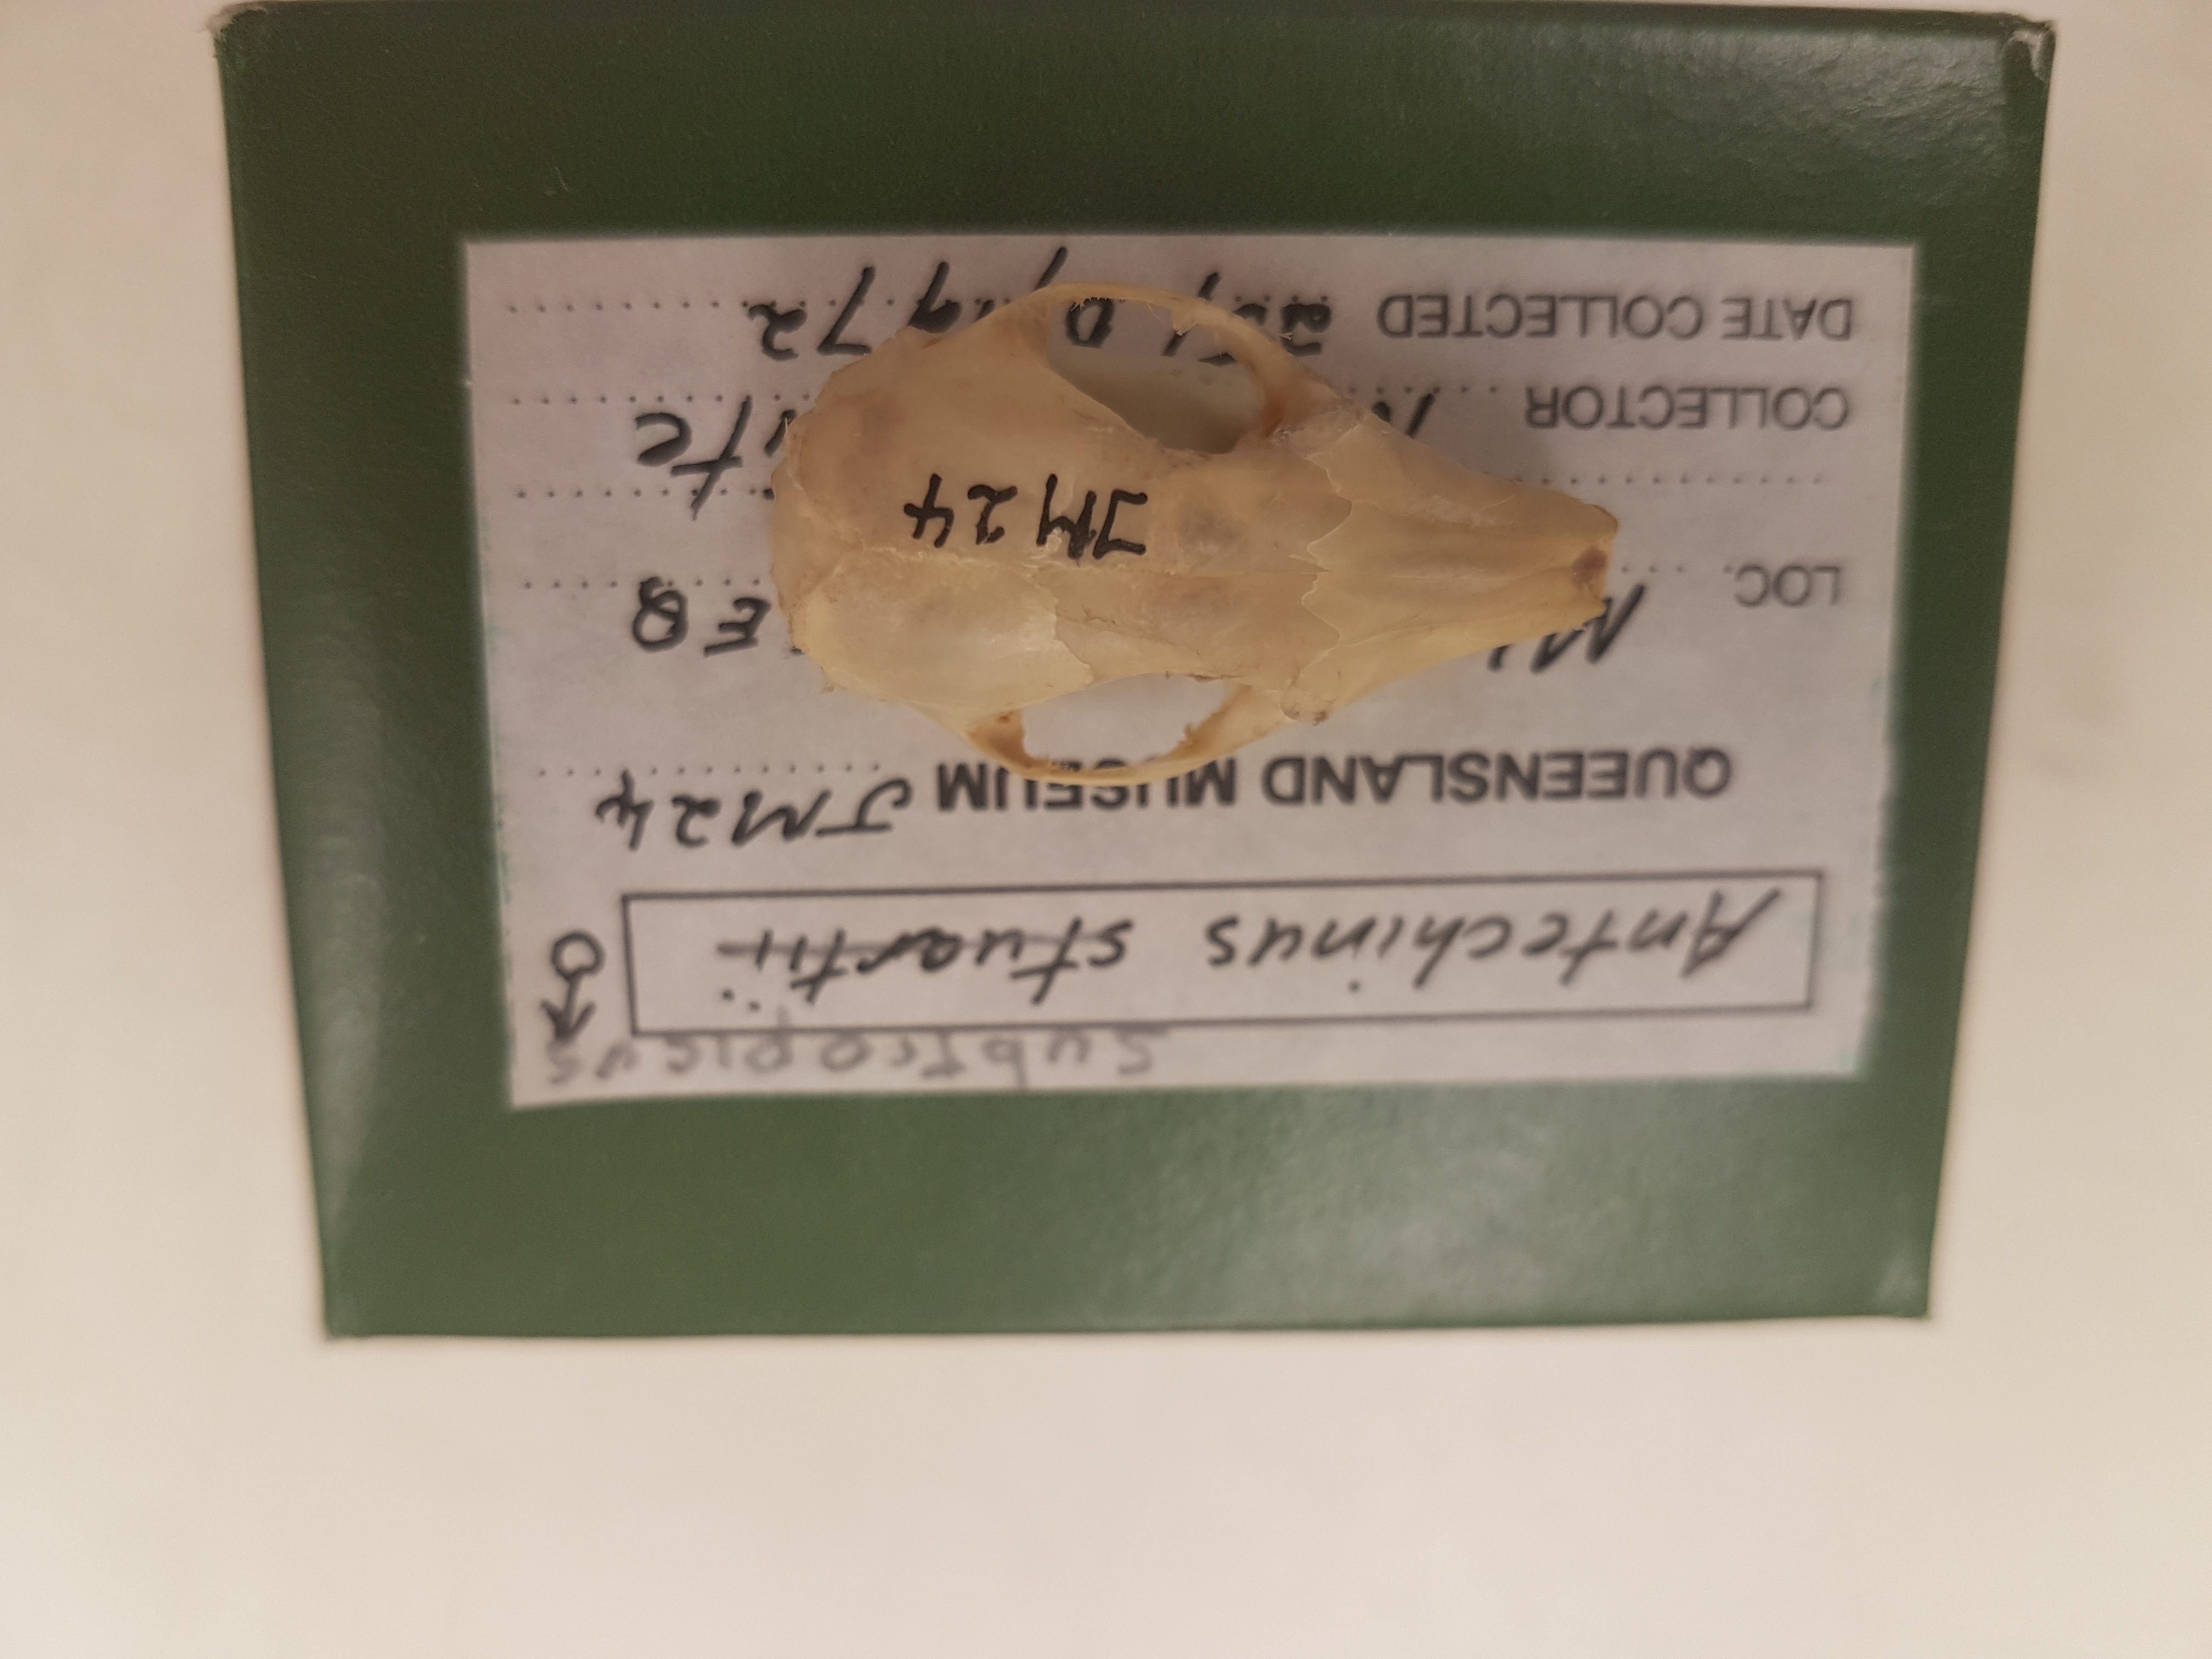 subtropicus
Antechinus stuartii ♂
QUEENSLAND MUSEUM JM24
LOC. E Q
COLLECTOR
DATE COLLECTED 1972
JM24